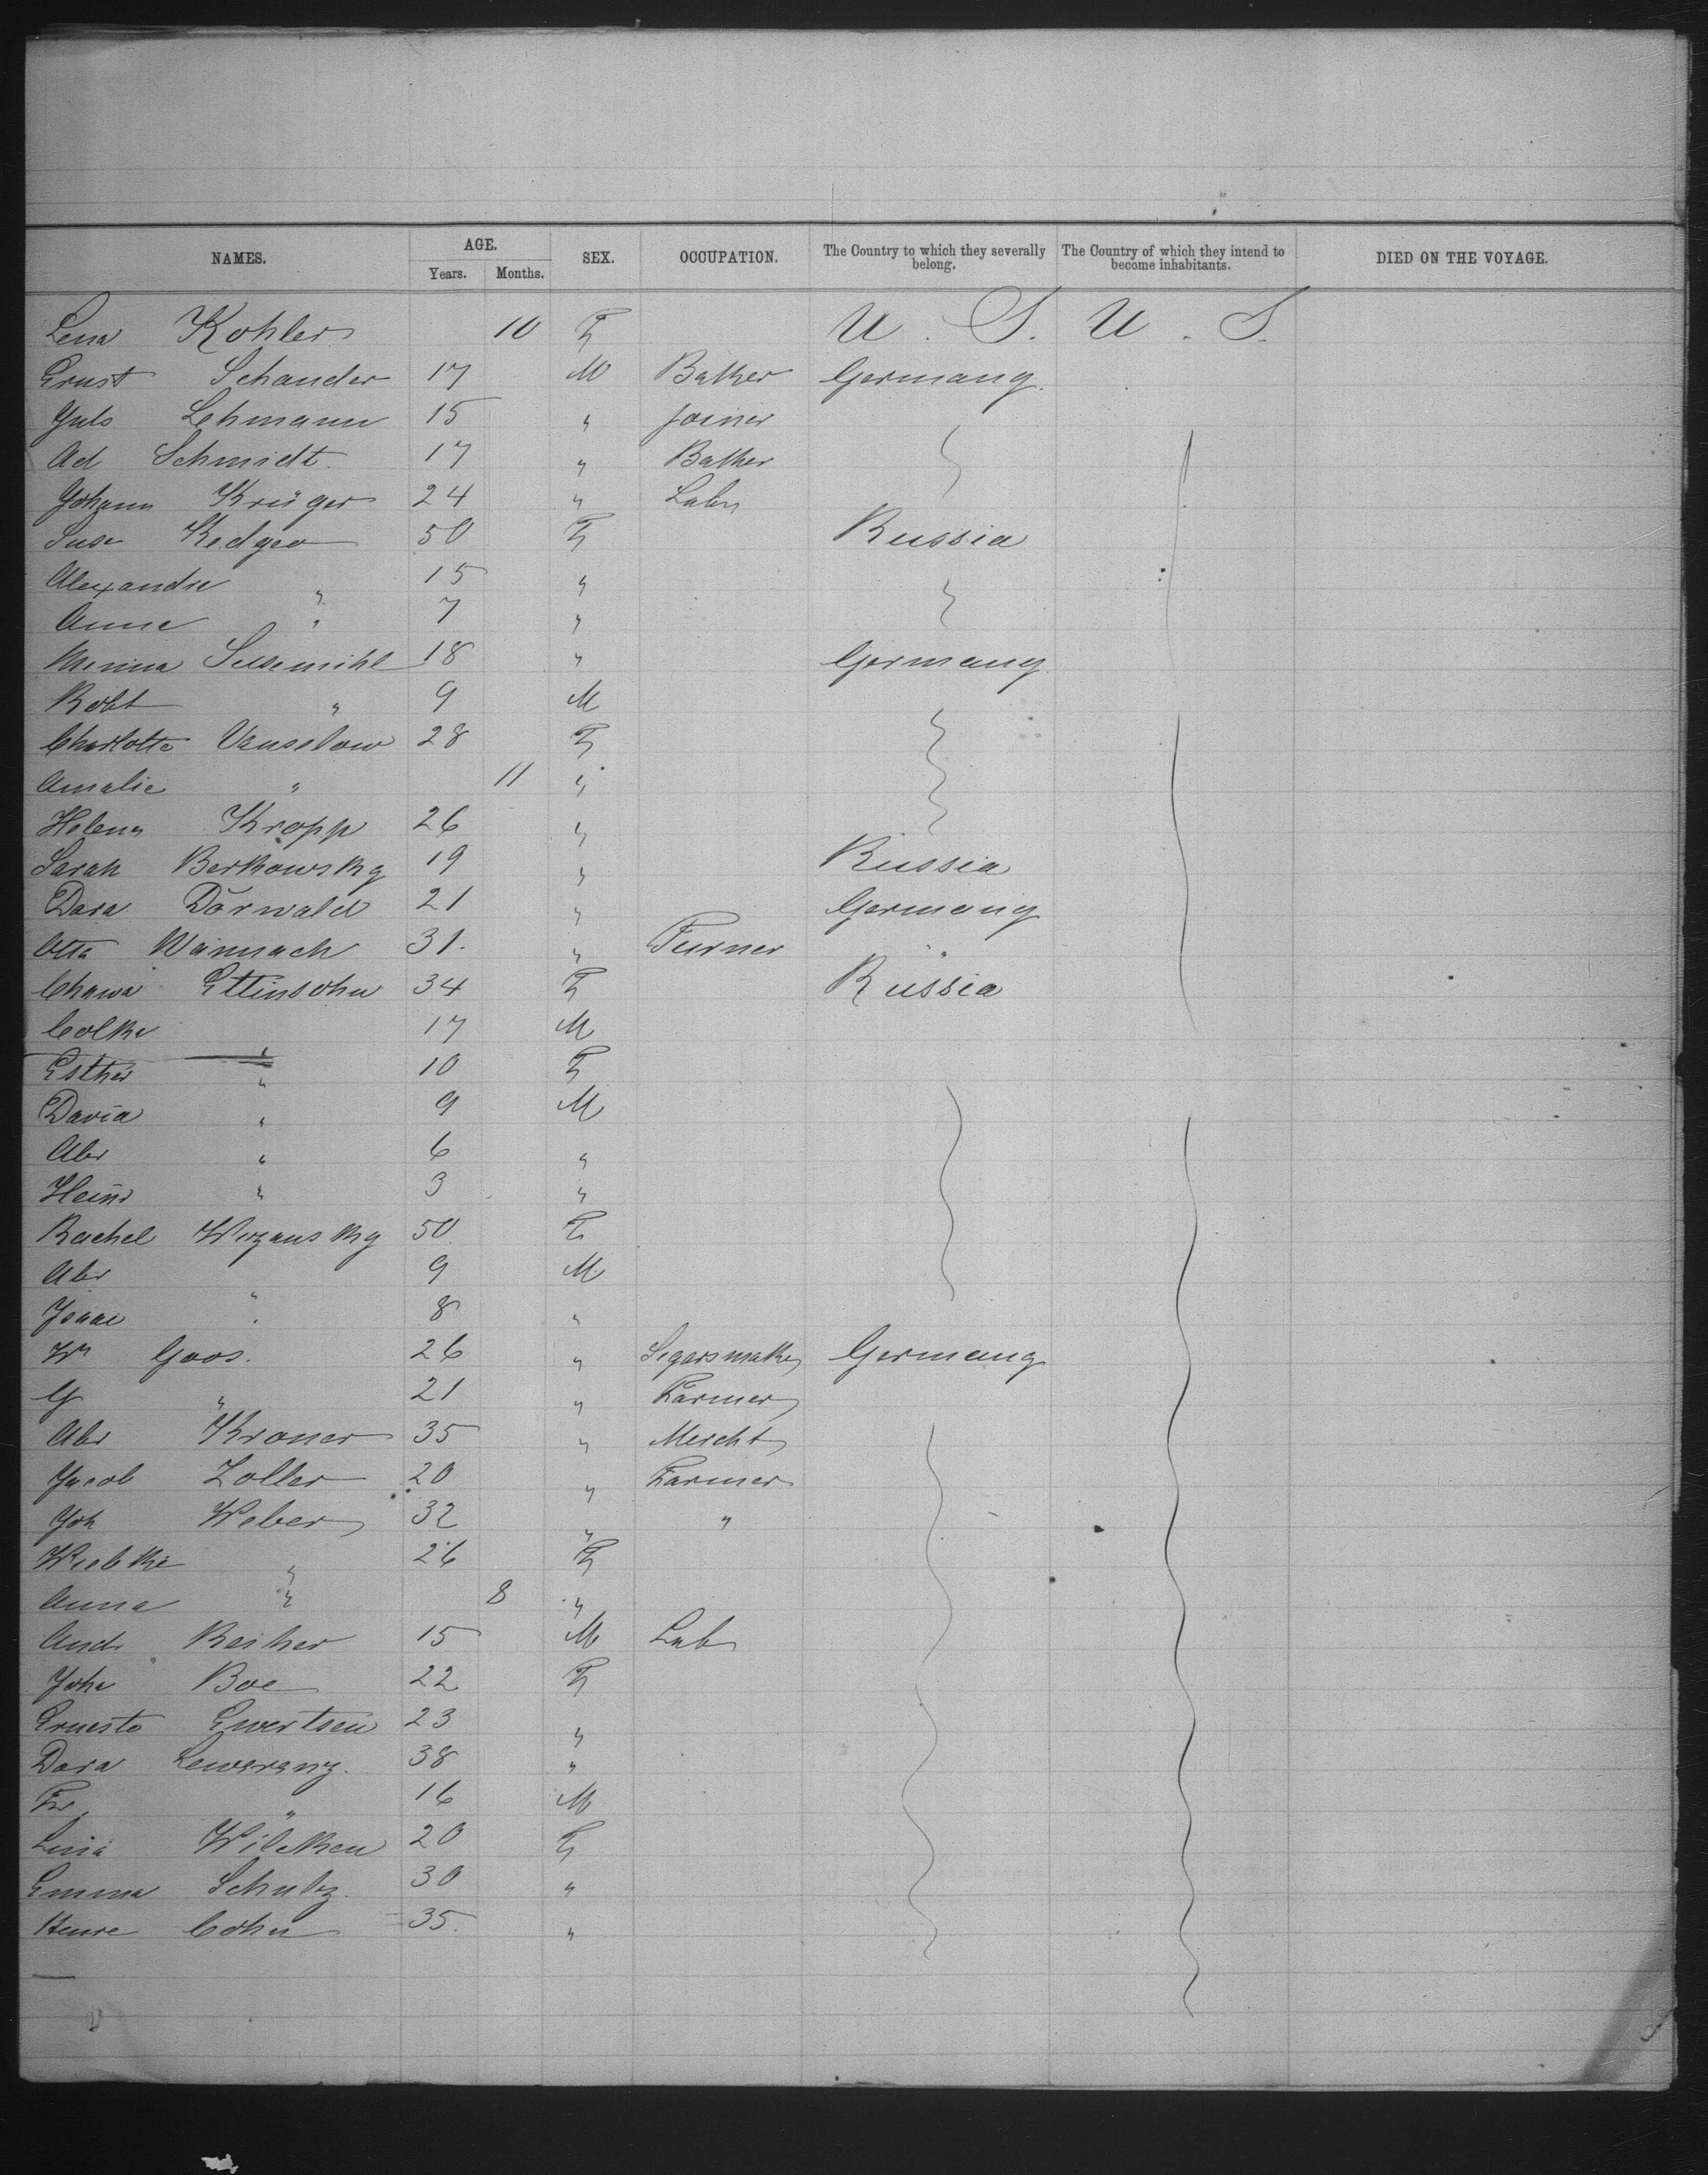 NAMES. AGE. SEX. OCCUPATION. The Country to which they severally belong. The Country of which they intend to become inhabitants. DIED ON THE VOYAGE.
Years. Months.
Lena Kohler 10 F U. S. U. S.
Ernst Schander 17 M Baker Germany
Lehmann 15 " Joiner
Ad Schmidt. 17 " Baker
Johann Krüger 24 " Labr
Suse 50 F Russia
Alexandre " 15 "
Anne " 7 "
Minna Susemihl 18 " Germany
Robt " 9 M
Charlotte Vanselow 28 F
Amalie " 11 "
Helena Kropp 26 "
Sarah Berkowsky 19 " Russia
Dora Dorwald 21 " Germany
Otto 31. " Turner "
Chawa Ettinsohn 34 F Russia
17 M
Esther " 10 F
David " 9 M
Abr " 6 "
Heinr " 3 "
Rachel 50 F
Abr " 9 M
Isaac " 8 "
Wm Goos. 26 " Segarsmaker Germany
G " 21 " Farmer
Abr Kroner 35 " Mercht
Jacob Zoller 20 " Farmer
Joh Weber 32 " "
Wiebke " 26 F
Anna " 8 "
And. Reiher 15 M Lab
Joha Boe 22 F
Ernesto Ewertsen 23 "
Dora 38 "
Fr. " 16 M
Wilcken 20 F
Emma Schulz. 30 "
Cohn 35. "